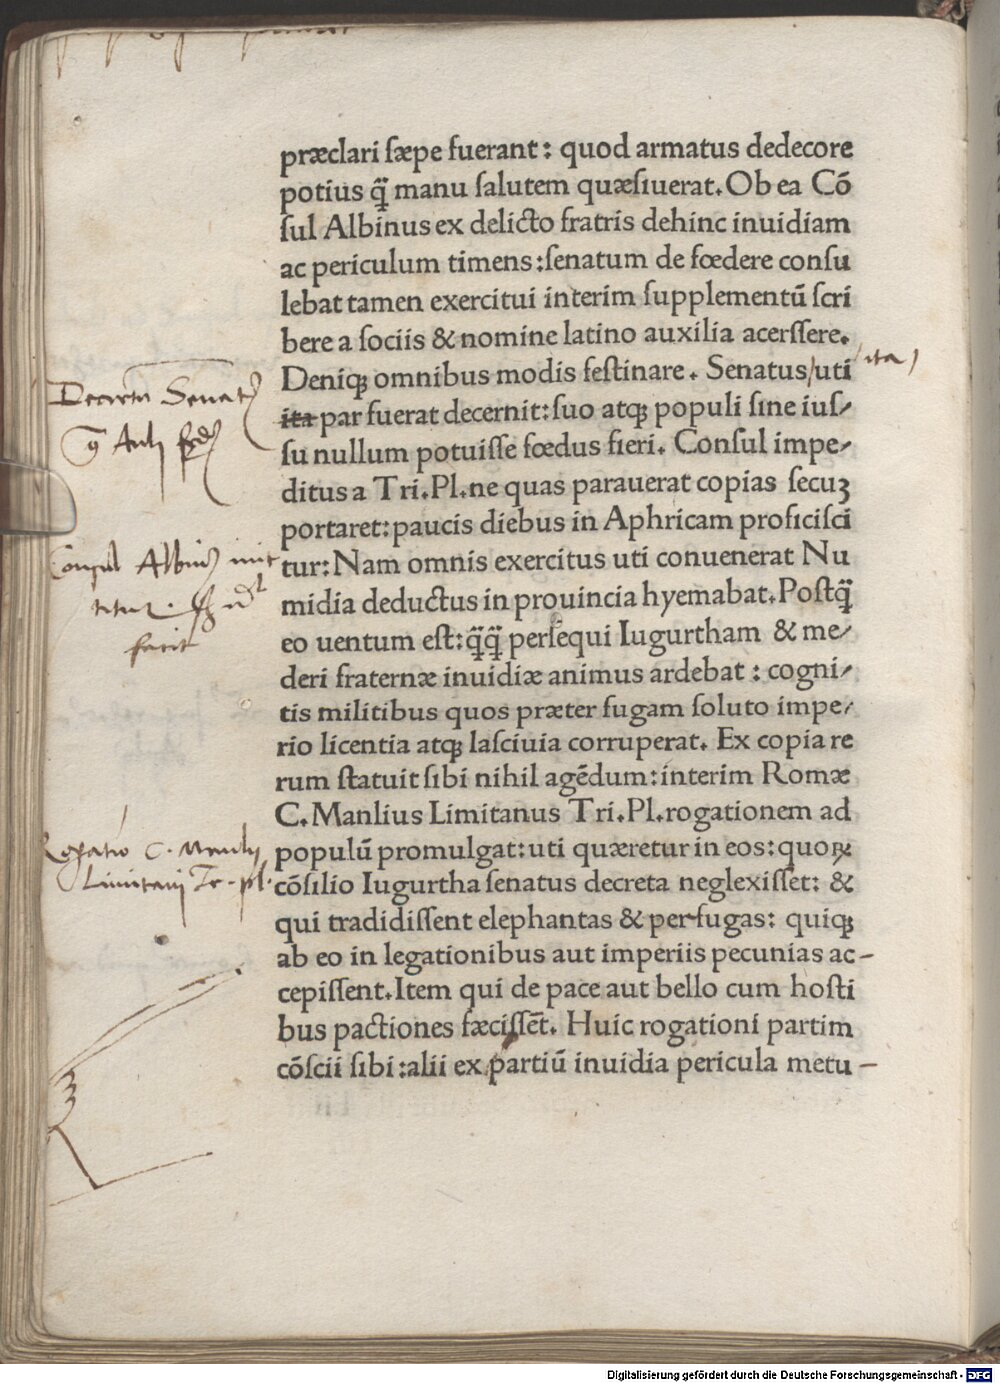 præclari ſæpe fuerant: quod armatus dedecore
potius q̃ manu ſalutem quæſiuerat. Ob ea Cõ
ſul Albinus ex delicto fratris dehinc inuidiam
ac periculum timens: ſenatum de fœdere conſu
lebat tamen exercitui interim ſupplementũ ſcri
bere a ſociis & nomine latino auxilia acerſſere.
Deniqꝫ omnibus modis feſtinare. Senatus/uti
/ita/
ita par fuerat decernit: ſuo atqꝫ populi ſine iuſ/
ſu nullum potuiſſe fœdus fieri. Conſul impe/
ditus a Tri. Pl. ne quas parauerat copias ſecuꝫ
portaret: paucis diebus in Aphricam proficiſci
tur: Nam omnis exercitus uti conuenerat Nu
midia deductus in prouincia hyemabat. Poſtq̃
eo uentum eſt: q̃q̃ perſequi Iugurtham & me/
deri fraternæ inuidiæ animus ardebat: cogni/
tis militibus quos præter fugam ſoluto impe/
rio licentia atqꝫ laſciuia corruperat. Ex copia re
rum ſtatuit ſibi nihil agẽdum: interim Romæ
C. Manlius Limitanus Tri. Pl. rogationem ad
populũ promulgat: uti quæretur in eos: quoꝝ
cõſilio Iugurtha ſenatus decreta neglexiſſet: &
qui tradidiſſent elephantas & perfugas: quiqꝫ
ab eo in legationibus aut imperiis pecunias ac-
cepiſſent. Item qui de pace aut bello cum hoſti
bus pactiones fæciſſẽt. Huic rogationi partim
cõſcii ſibi: alii ex partiũ inuidia pericula metu-
Decretũ Senatꝰ
Consul Albinꝰ
facit
Rogatio C. Manlij
Limitanj Tr. pl.
Digitalisierung gefördert durch die Deutsche Forschungsgemeinschaft - DFG